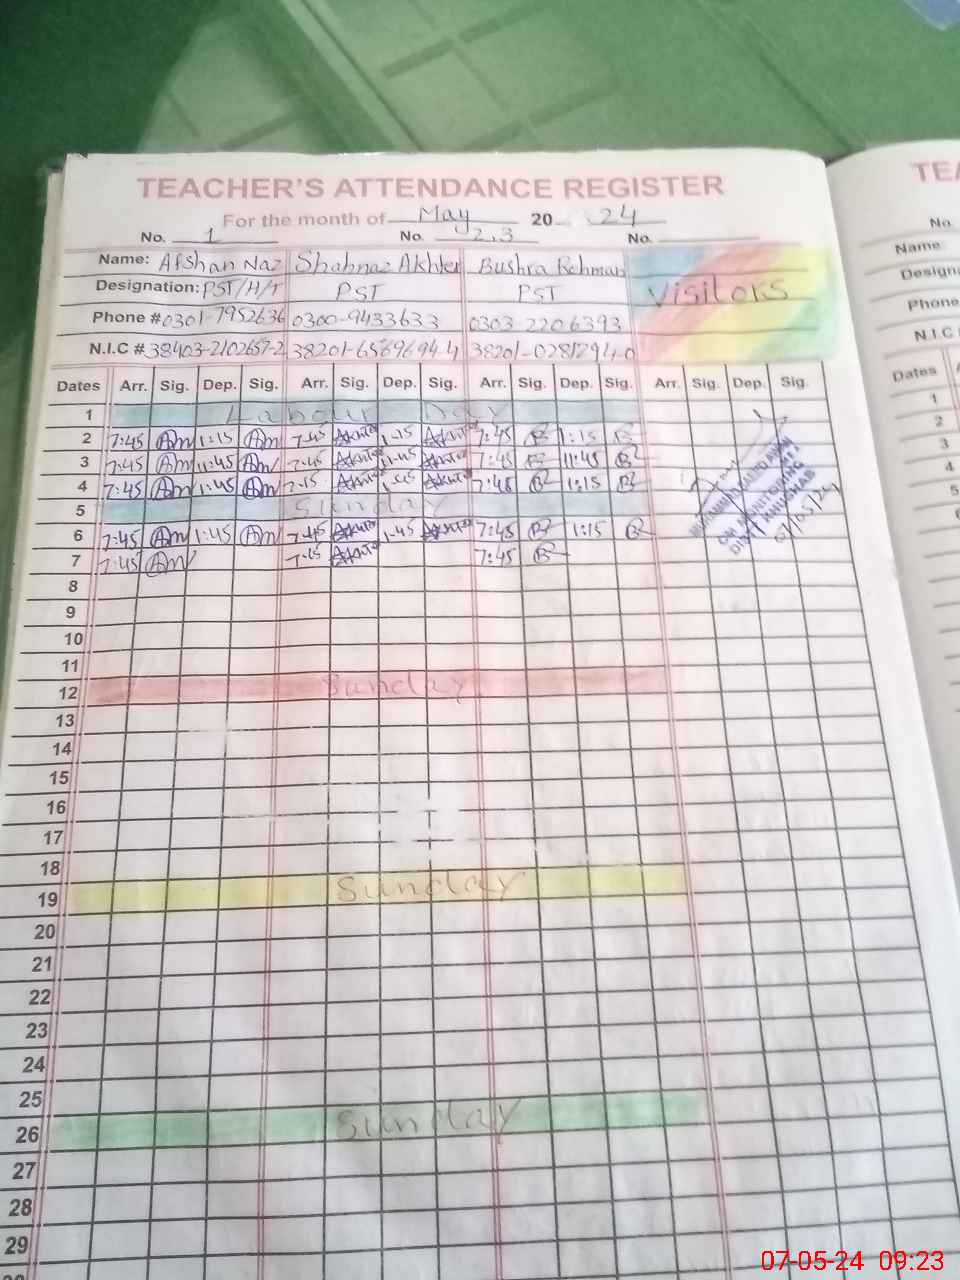 TEACHER'S ATTENDANCE REGISTER
For the month of May 20 24
No. 1 No. 2,3 No.
Name: Afshan Naz Shahnaz Akhter Bushra Rehman Visitors
Designation: PST/H/T PST PST
Phone # 0301-7952636 0300-9433633 0303-2206393
N.I.C # 38403-2102657-2 38201-6569694-4 38201-0281294-0
Dates Arr. Sig. Dep. Sig. Arr. Sig. Dep. Sig. Arr. Sig. Dep. Sig. Arr. Sig. Dep. Sig.
1 Labour Day
2 7:45 Am 1:15 Am 7:45 Akhter 1:15 Akhter 7:45 B 1:15 B
3 7:45 Am 11:45 Am 7:45 Akhter 11:45 Akhter 7:45 B 11:45 B
4 7:45 Am 1:45 Am 7:15 Akhter Akhter 7:45 B 1:15 B
5 Sunday
6 7:45 Am 1:45 Am 7:45 Akhter 1:45 Akhter 7:45 B 1:15 B
7 7:45 Am 7:45 Akhter 7:45 B
07/05/24
8
9
10
11
12 Sunday
13
14
15
16
17
18
19 Sunday
20
21
22
23
24
25
26 Sunday
27
28
29
TEA
No.
Name
Designa
Phone
N.I.C
Dates
1
2
3
4
5
6
07-05-24 09:23